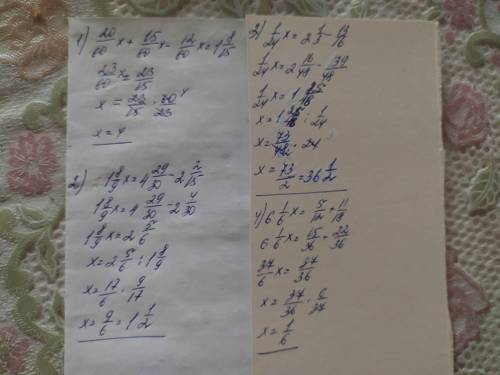 1) 20/60 x + 15/60 x - 12/60 x = 1 8/15
23/60 x = 23/15
x = 23/15 · 60/23
x = 4
2) 1 8/9 x = 4 29/30 - 2 2/15
1 8/9 x = 4 29/30 - 2 4/30
1 8/9 x = 2 5/6
x = 2 5/6 : 1 8/9
x = 17/6 · 9/17
x = 9/6 = 1 1/2
3) 1/24 x = 2 1/3 - 13/16
1/24 x = 2 16/48 - 39/48
1/24 x = 1 25/48
x = 1 25/48 : 1/24
x = 73/48 · 24
x = 73/2 = 36 1/2
4) 6 1/6 x = 5/12 + 11/18
6 1/6 x = 15/36 + 22/36
37/6 x = 37/36
x = 37/36 · 6/37
x = 1/6